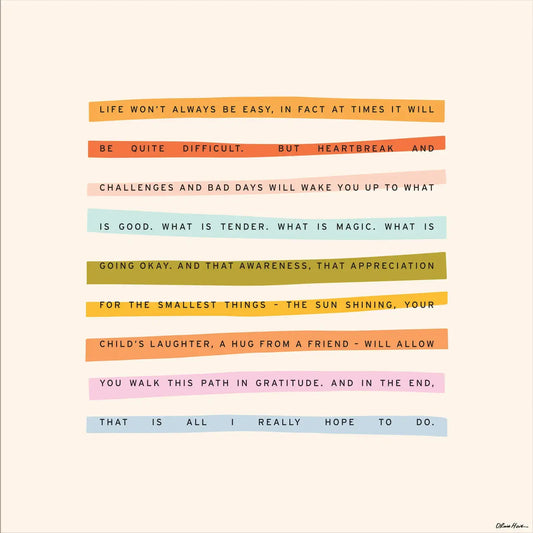 LIFE WON'T ALWAYS BE EASY, IN FACT AT TIMES IT WILL
BE QUITE DIFFICULT. BUT HEARTBREAK AND
CHALLENGES AND BAD DAYS WILL WAKE YOU UP TO WHAT
IS GOOD. WHAT IS TENDER. WHAT IS MAGIC. WHAT IS
GOING OKAY. AND THAT AWARENESS, THAT APPRECIATION
FOR THE SMALLEST THINGS – THE SUN SHINING, YOUR
CHILD'S LAUGHTER, A HUG FROM A FRIEND – WILL ALLOW
YOU WALK THIS PATH IN GRATITUDE. AND IN THE END,
THAT IS ALL I REALLY HOPE TO DO.